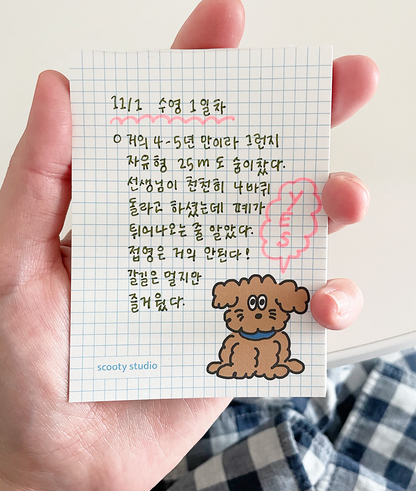 11/1 수영 1일차
○ 거의 4-5년 만이라 그런지
자유형 25m도 숨이찼다.
선생님이 천천히 4바퀴
돌라고 하셨는데 폐가
튀어나오는 줄 알았다.
접영은 거의 안된다!
갈길은 멀지만
즐거웠다.
YES
scooty studio